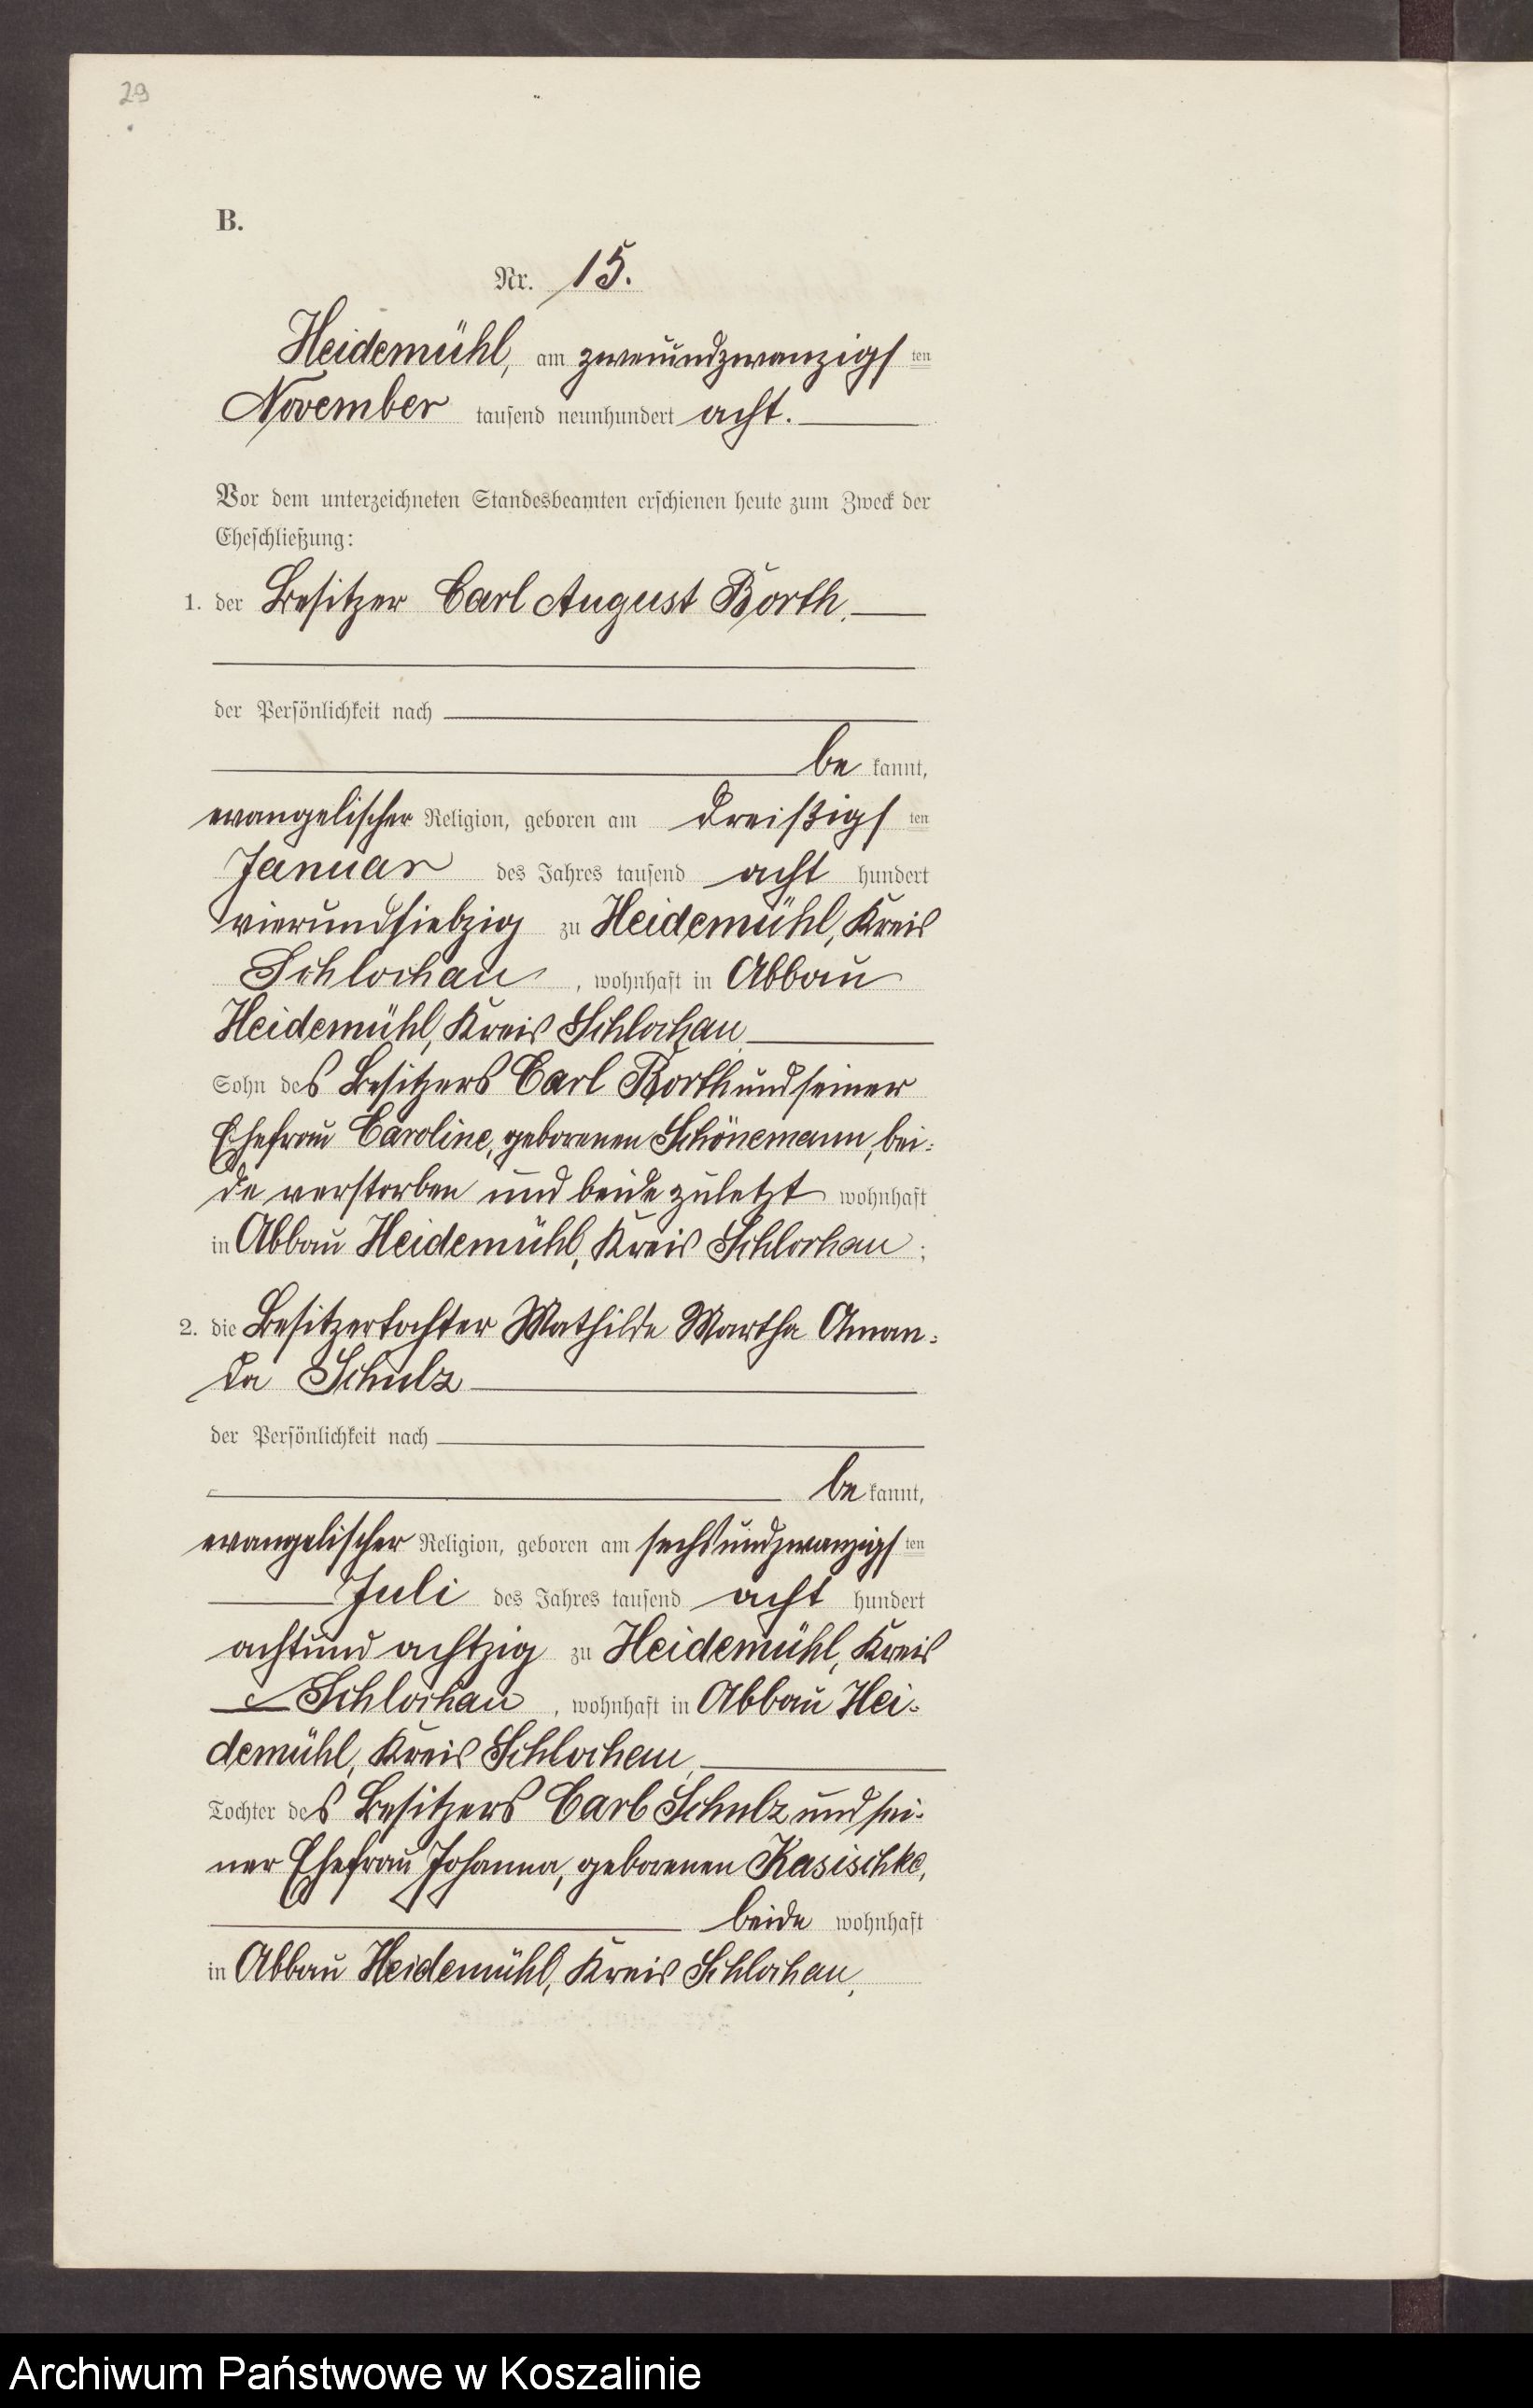 29
B.
Nr. 15.
Heidemühl, am zweiundzwanzigsten
November tausend neunhundert acht.
Vor dem unterzeichneten Standesbeamten erschienen heute zum Zweck der
Eheschließung:
1. der Besitzer Carl August Borth,
der Persönlichkeit nach
be kannt,
evangelischer Religion, geboren am dreißigsten
Januar des Jahres tausend acht hundert
vierundsiebzig zu Heidemühl, Kreis
Schlochau, wohnhaft in Abbau
Heidemühl, Kreis Schlochau,
Sohn des Besitzers Carl Borth und seiner
Ehefrau Caroline, geborenen Schönemann, bei=
de verstorben und beide zuletzt wohnhaft
in Abbau Heidemühl, Kreis Schlochau;
2. die Besitzertochter Mathilde Martha Aman=
da Schulz
der Persönlichkeit nach
be kannt,
evangelischer Religion, geboren am sechsundzwanzigsten
Juli des Jahres tausend acht hundert
achtund achtzig zu Heidemühl, Kreis
Schlochau, wohnhaft in Abbau Hei=
demühl, Kreis Schlochau,
Tochter des Besitzers Carl Schulz und sei=
ner Ehefrau Johanna, geborenen Kasischke,
beide wohnhaft
in Abbau Heidemühl, Kreis Schlochau,
Archiwum Państwowe w Koszalinie